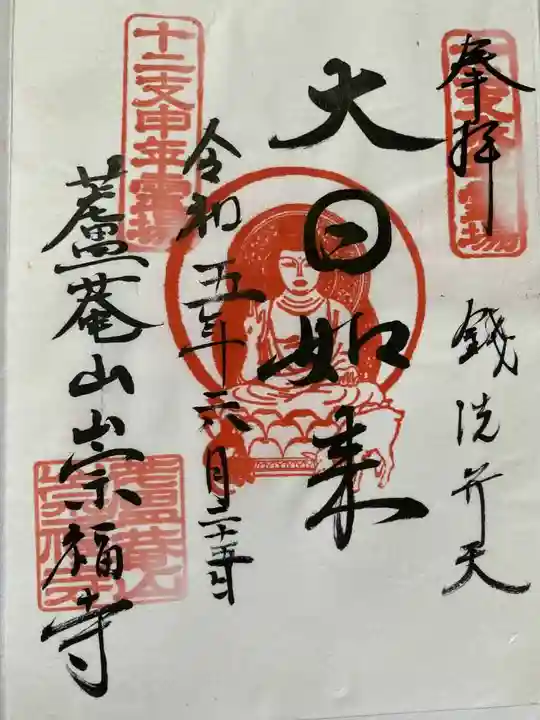 奉拝
銭洗弁天
大日如来
令和五年六月二十五日
十二支申年霊場
蘆菴山崇福寺